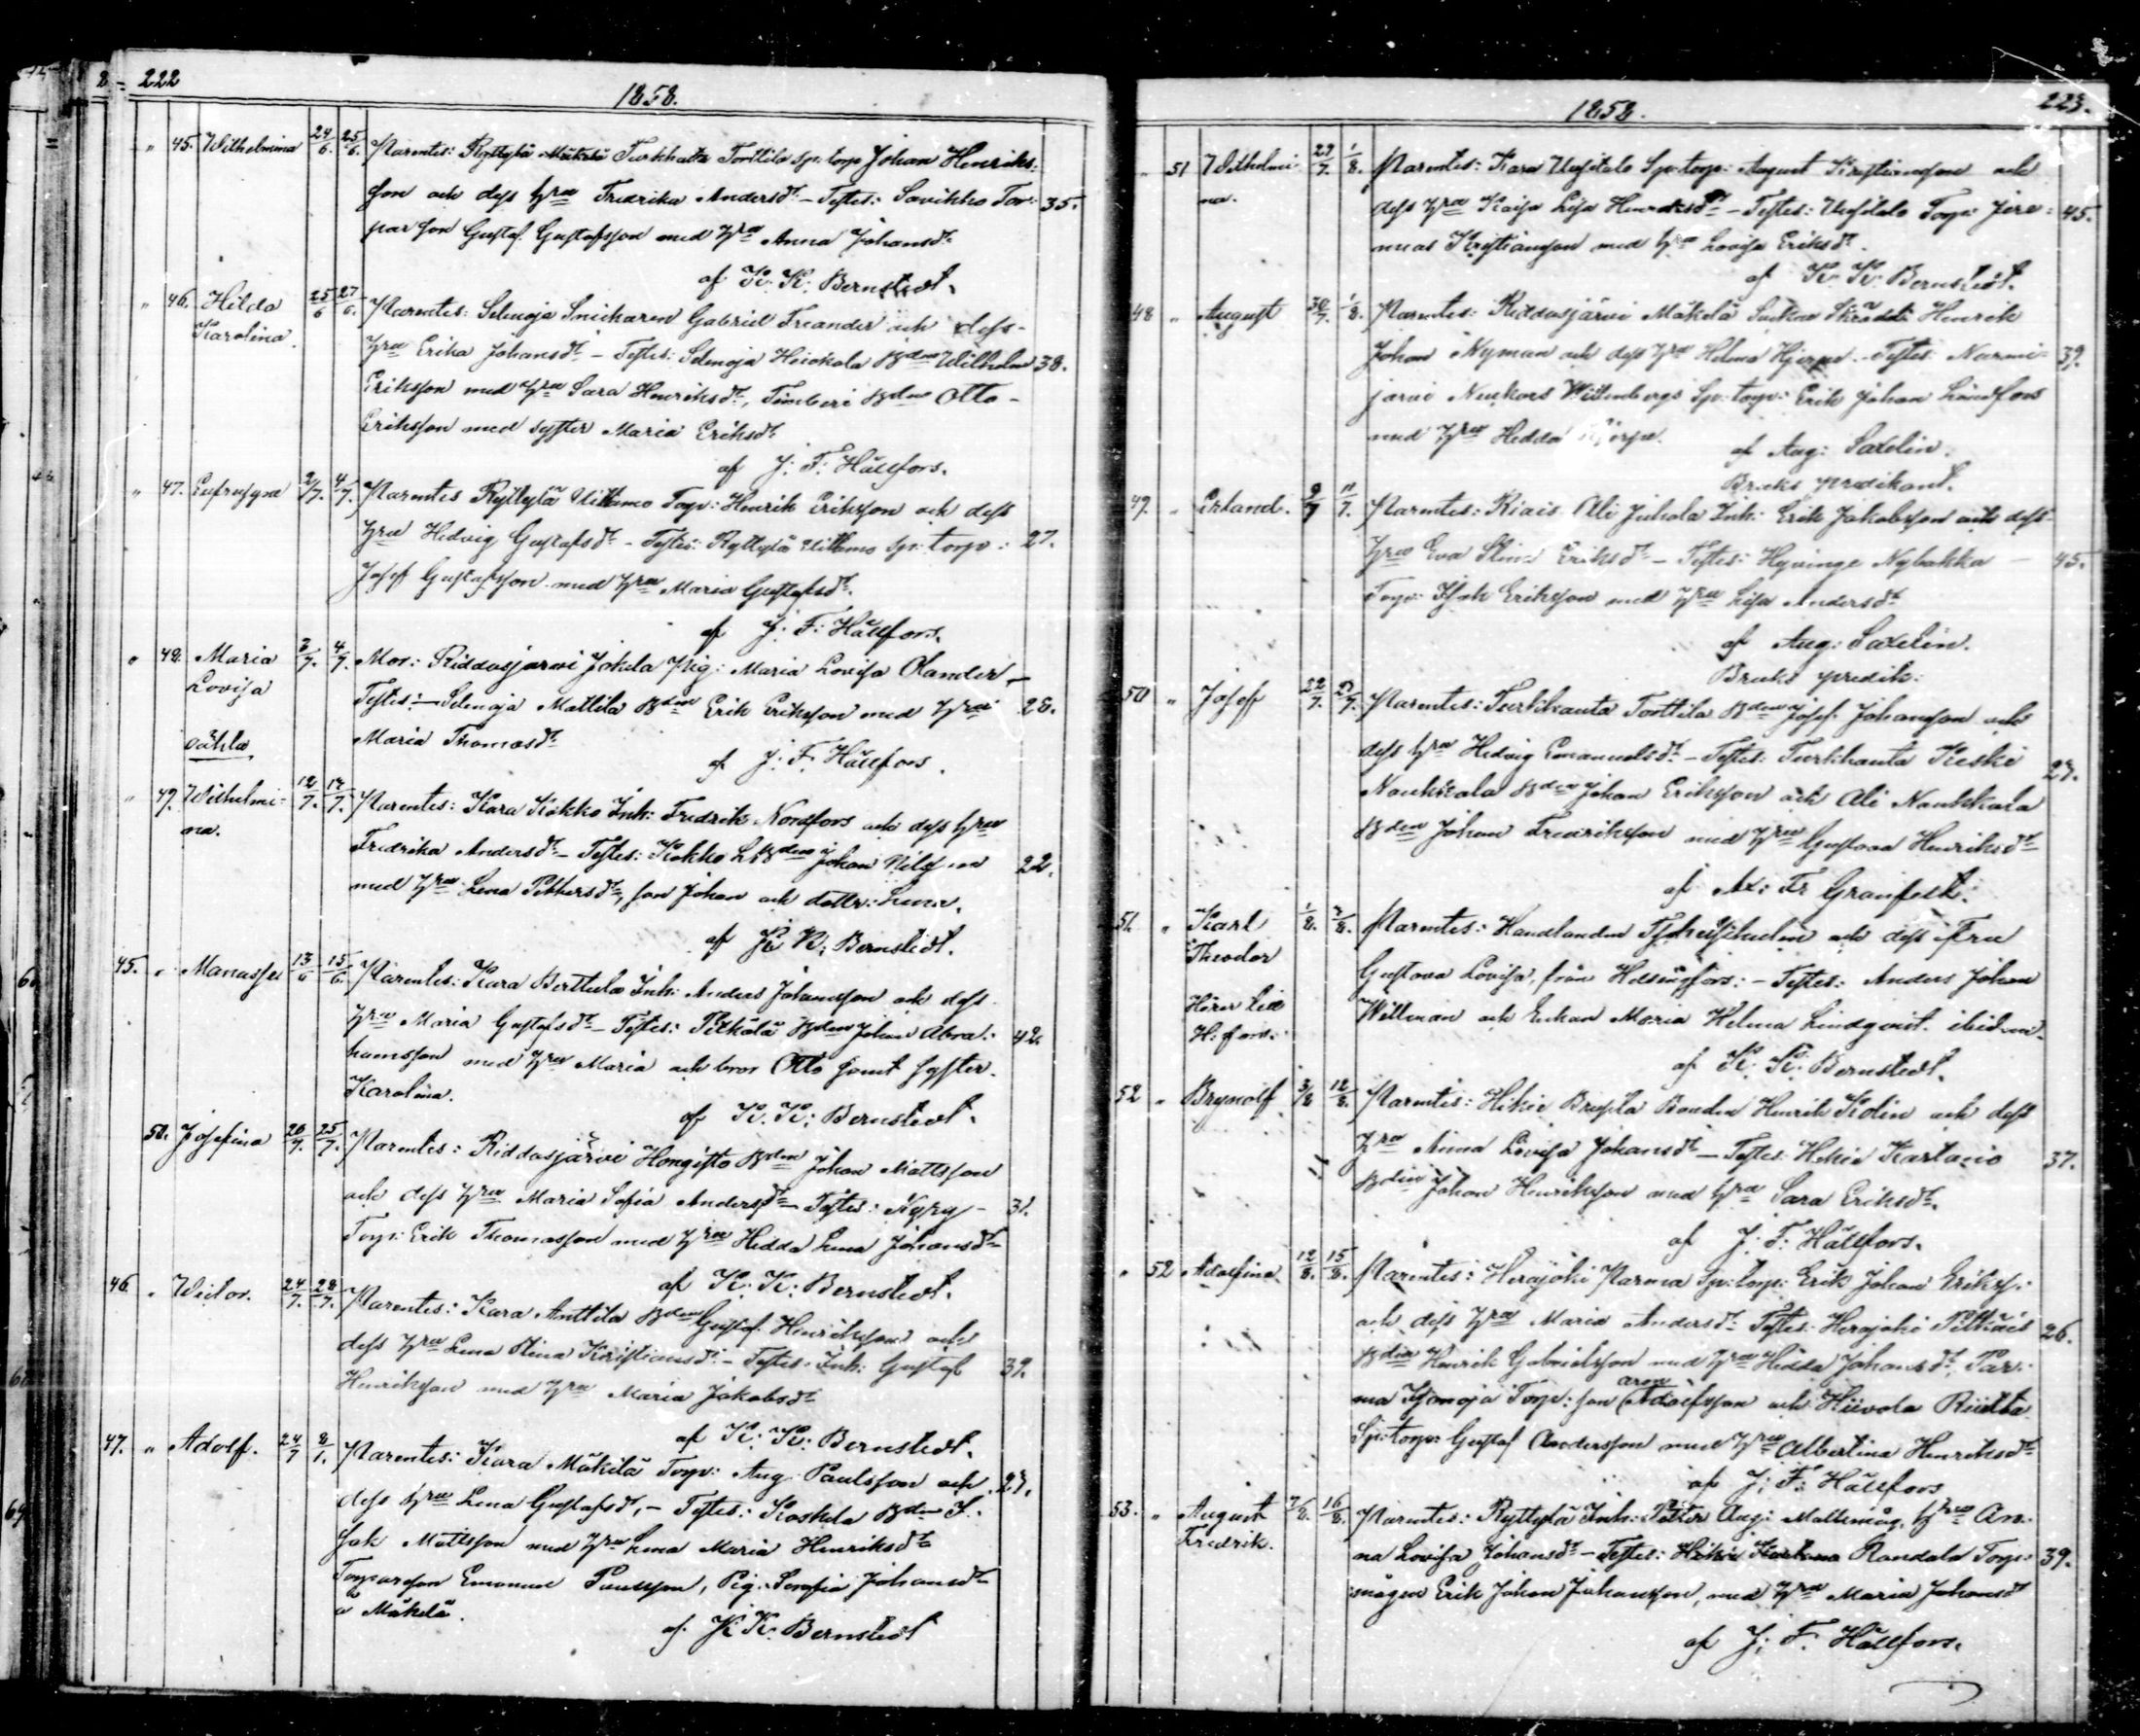 222
1858.
" 45. Wilhelmina 24/6. 25/6. Parentes: Ryttylä Mäkelä Turkhauta Tonttila Sp: torp: Johan Henriks:
son och dess hru Fredrika Andersdr – Testes: Savikko Tor: 35.
par son Gustaf Gustafsson med hru Anna Johansdr
af K: K: Bernstedt.
" 46. Hilda 25/6 27/6. Parentes: Selenoja Snickaren Gabriel Freander och dess
Karolina. hru Erika Johansdr – Testes: Selenoja Heikola Bden Wilhelm 38.
Eriksson med hru Sara Henriksdr, Timberi Bden Otto
Eriksson med syster Maria Eriksdr
af J: F: Hällfors.
" 47. Eufrosyne 2/7. 4/7. Parentes Ryttylä Uittamo Torp: Henrik Eriksson och dess
hru Hedvig Gustafsdr – Testes: Ryttylä Uittamo Sp: torp: 27.
Josef Gustafsson med hru Maria Gustafsdr.
af J: F: Hällfors.
" 48. Maria 3/7. 4/7. Mor: Riddasjärvi Jokela Pig: Maria Lovisa Olander –
Lovisa Testes: – Selenoja Mattila Bden Erik Eriksson med hru 28.
oäkta Maria Thomasdr
af J: F: Hällfors.
" 49. Wilhelmi- 12/7. 17/7. Parentes: Kara Kokko Inh: Fredrik Nordfors och dess hru
na. Fredrika Andersdr – Testes: Kokko Bden Johan 22.
med hru Lena Pettersdr, son Johan och dottr: Lena.
af K: K: Bernstedt.
45. " Manasse 13/6 15/6. Parentes: Kara Berttula Inh: Anders Johansson och dess
hru Maria Gustafsdr – Testes: Pitkälä Bden Johan Abra: 42.
hamsson med hru Maria och bror Otto samt syster
Karolina.
af K: K: Bernstedt.
50. Josefina 20/7. 25/7. Parentes: Riddasjärvi Hongisto Bden Johan Mattsson
och dess hru Maria Sofia Andersdr – Testes: 31.
Torp: Erik Thomasson med hru Hedda Lena Johansdr
af K: K: Bernstedt.
46. " Victor. 24/7. 28/7. Parentes: Kara Anttila Bden Gustaf Henriksson och
dess hru Lena Stina Kristiansdr – Testes: Inh: Gustaf 39.
Henriksson med hru Maria Jakobsdr
af K: K: Bernstedt.
47. " Adolf. 24/7 8/1. Parentes: Kara Mäkilä Torp: Aug: Paulsson och 27.
dess hru Lena Gustafsdr, – Testes: Koskela Bden I-
sak Mattsson med hru Lena Maria Henriksdr
Torparson Emanuel Paulsson, Pig: Serafia Johansdr
å Mäkelä.
af K: K: Bernstedt
1858. 223.
" 51 Wilhelmi- 29/7. 1/8. Parentes: Kara Uusitalo Sp: torp: August Kristiansson och
na. dess hru Kaisa Lisa Henriksdr – Testes: Uusitalo Torp: Jere: 45.
mias Kristiansson med hru Lovisa Eriksdr.
af K: K: Bernstedt.
48 " August 30/7. 1/8. Parentes: Riddasjärvi Mäkelä Sockne Skräddr Henrik
Johan Nyman och dess hru Helena Hjerpe – Testes: Nurmi- 39.
järvi Nuckars Wittenbergs Sp: torp: Erik Johan Lindfors
med hru Hedda Hjerpe.
af Aug: Saxelin.
Bruks predikant.
49. " Erland. 9/7 11/7. Parentes: Kiais Ali Juhola Inh: Erik Jakobsson och dess
hru Eva Stina Eriksdr – Testes: Hyvinge Nybakka – 45.
Torp: Isak Eriksson med hru Lisa Andersdr
af Aug: Saxelin.
Bruks predik:
50 " Josef 22/7. 23/7. Parentes: Turkhauta Tonttila Bden Josef Johansson och
dess hru Hedvig Emanuelsdr – Testes: Turkhauta Keski 27.
Nauhkala Bden Johan Eriksson och Ali Nauhkala
Bden Johan Fredriksson med hru Gustava Henriksdr
af Ax: Fr Granfelt.
51. " Karl 1/8. 7/8. Parentes: Handlanden och dess Fru
Theodor Gustava Lovisa, från Helsingfors: – Testes: Anders Johan
Hörer till Willman och Enkan Maria Helena Lindqvist. ibidem.
H: fors:
af K: K: Bernstedt.
52 " Brynolf 3/8 12/8. Parentes: Hikie Bonden Henrik Kolin och dess
hru Anna Lovisa Johansdr – Testes: Hikie Kartano 37.
Bden Johan Henriksson med hru Sara Eriksdr.
af J: F: Hällfors.
" 52 Adolfina 12/8. 15/8. Parentes: Herajoki Parma Sp: torp: Erik Johan Erikss:
och dess hru Maria Andersdr Testes: Herajoki Pitkäis 26.
Bden Henrik Gabrielsson med hru Hedda Johansdr, Par-
ma Torp: son Aron Adolfsson och Hiivola
Sp: torp: Gustaf Andersson med hru Albertina Henriksdr
af J: F: Hällfors
53. " August 7/8. 16/8. Parentes: Ryttylä Inh: Petter Aug: hru An-
Fredrik. na Lovisa Johansdr – Testes: Hikie Randala Torp: 39.
mågen Erik Johan Juhansson, med hru Maria Johansdr
af J: F: Hällfors.